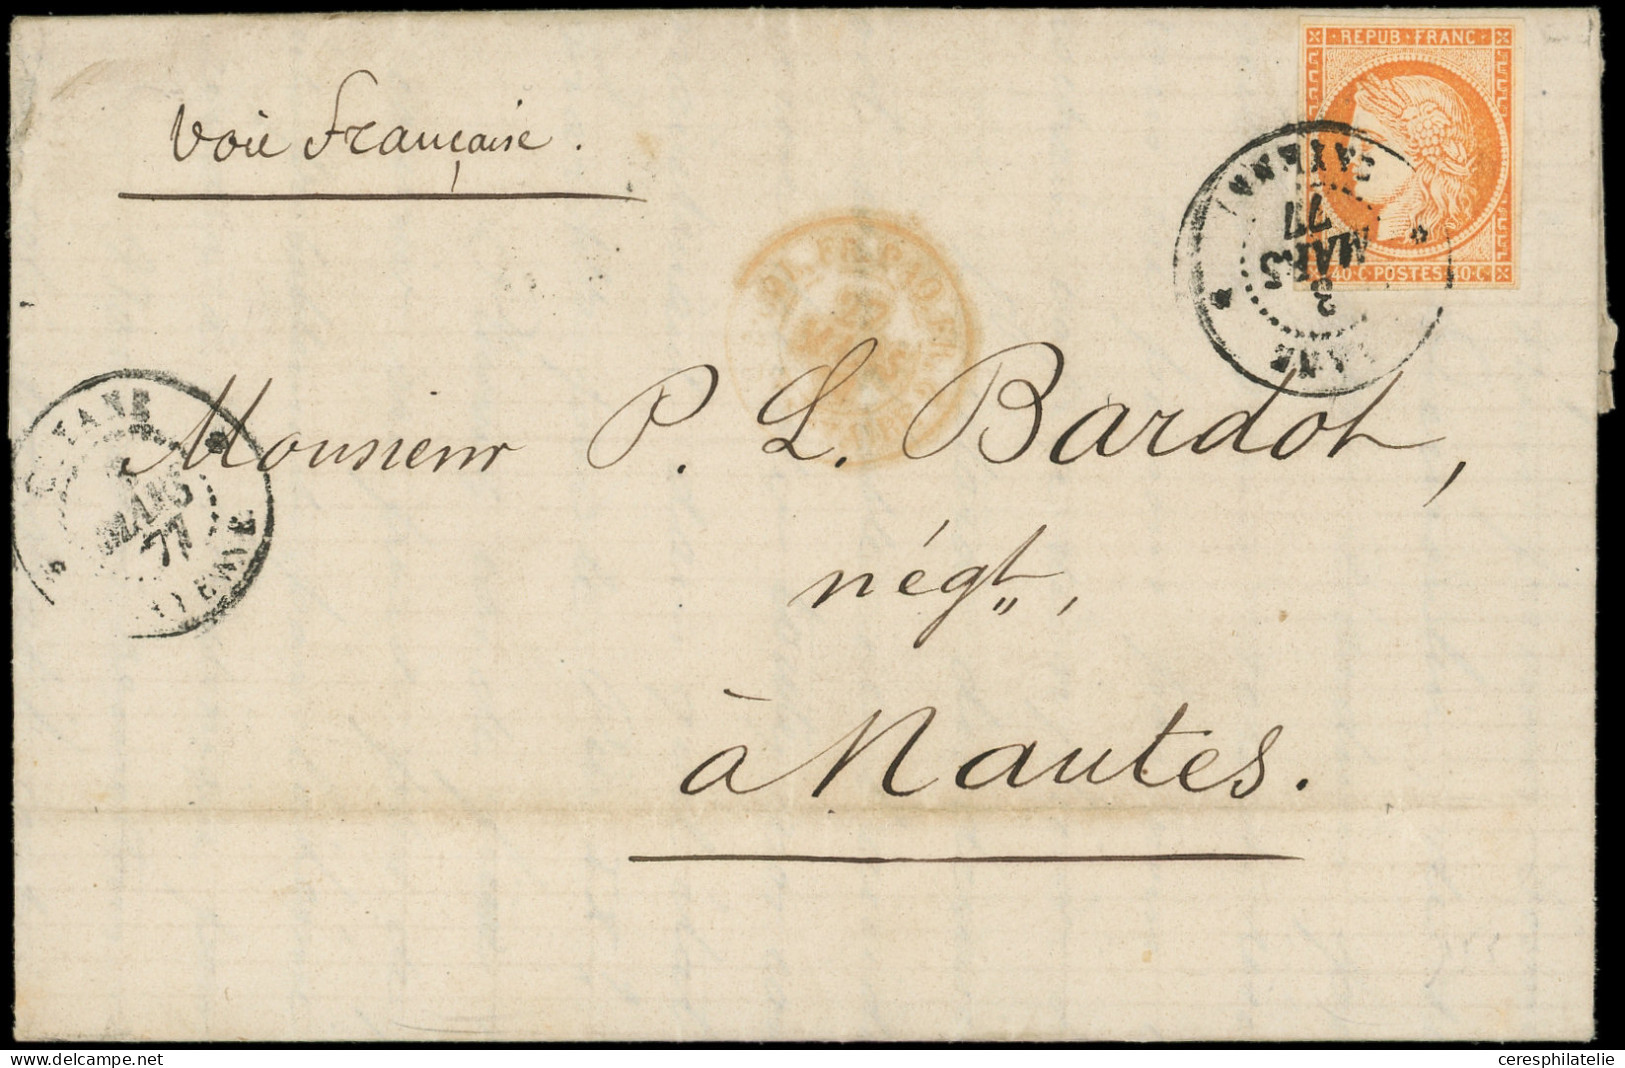 REPUB·FRANC
Voie Française.
CAYENNE
77
MARS
3
40·C·POSTES·40·C
COL. FR.
GUYANE
Monsieur P. L. Bardot,
3
MARS
77
CAYENNE
négt,
à Nantes.
ceresphilatelie